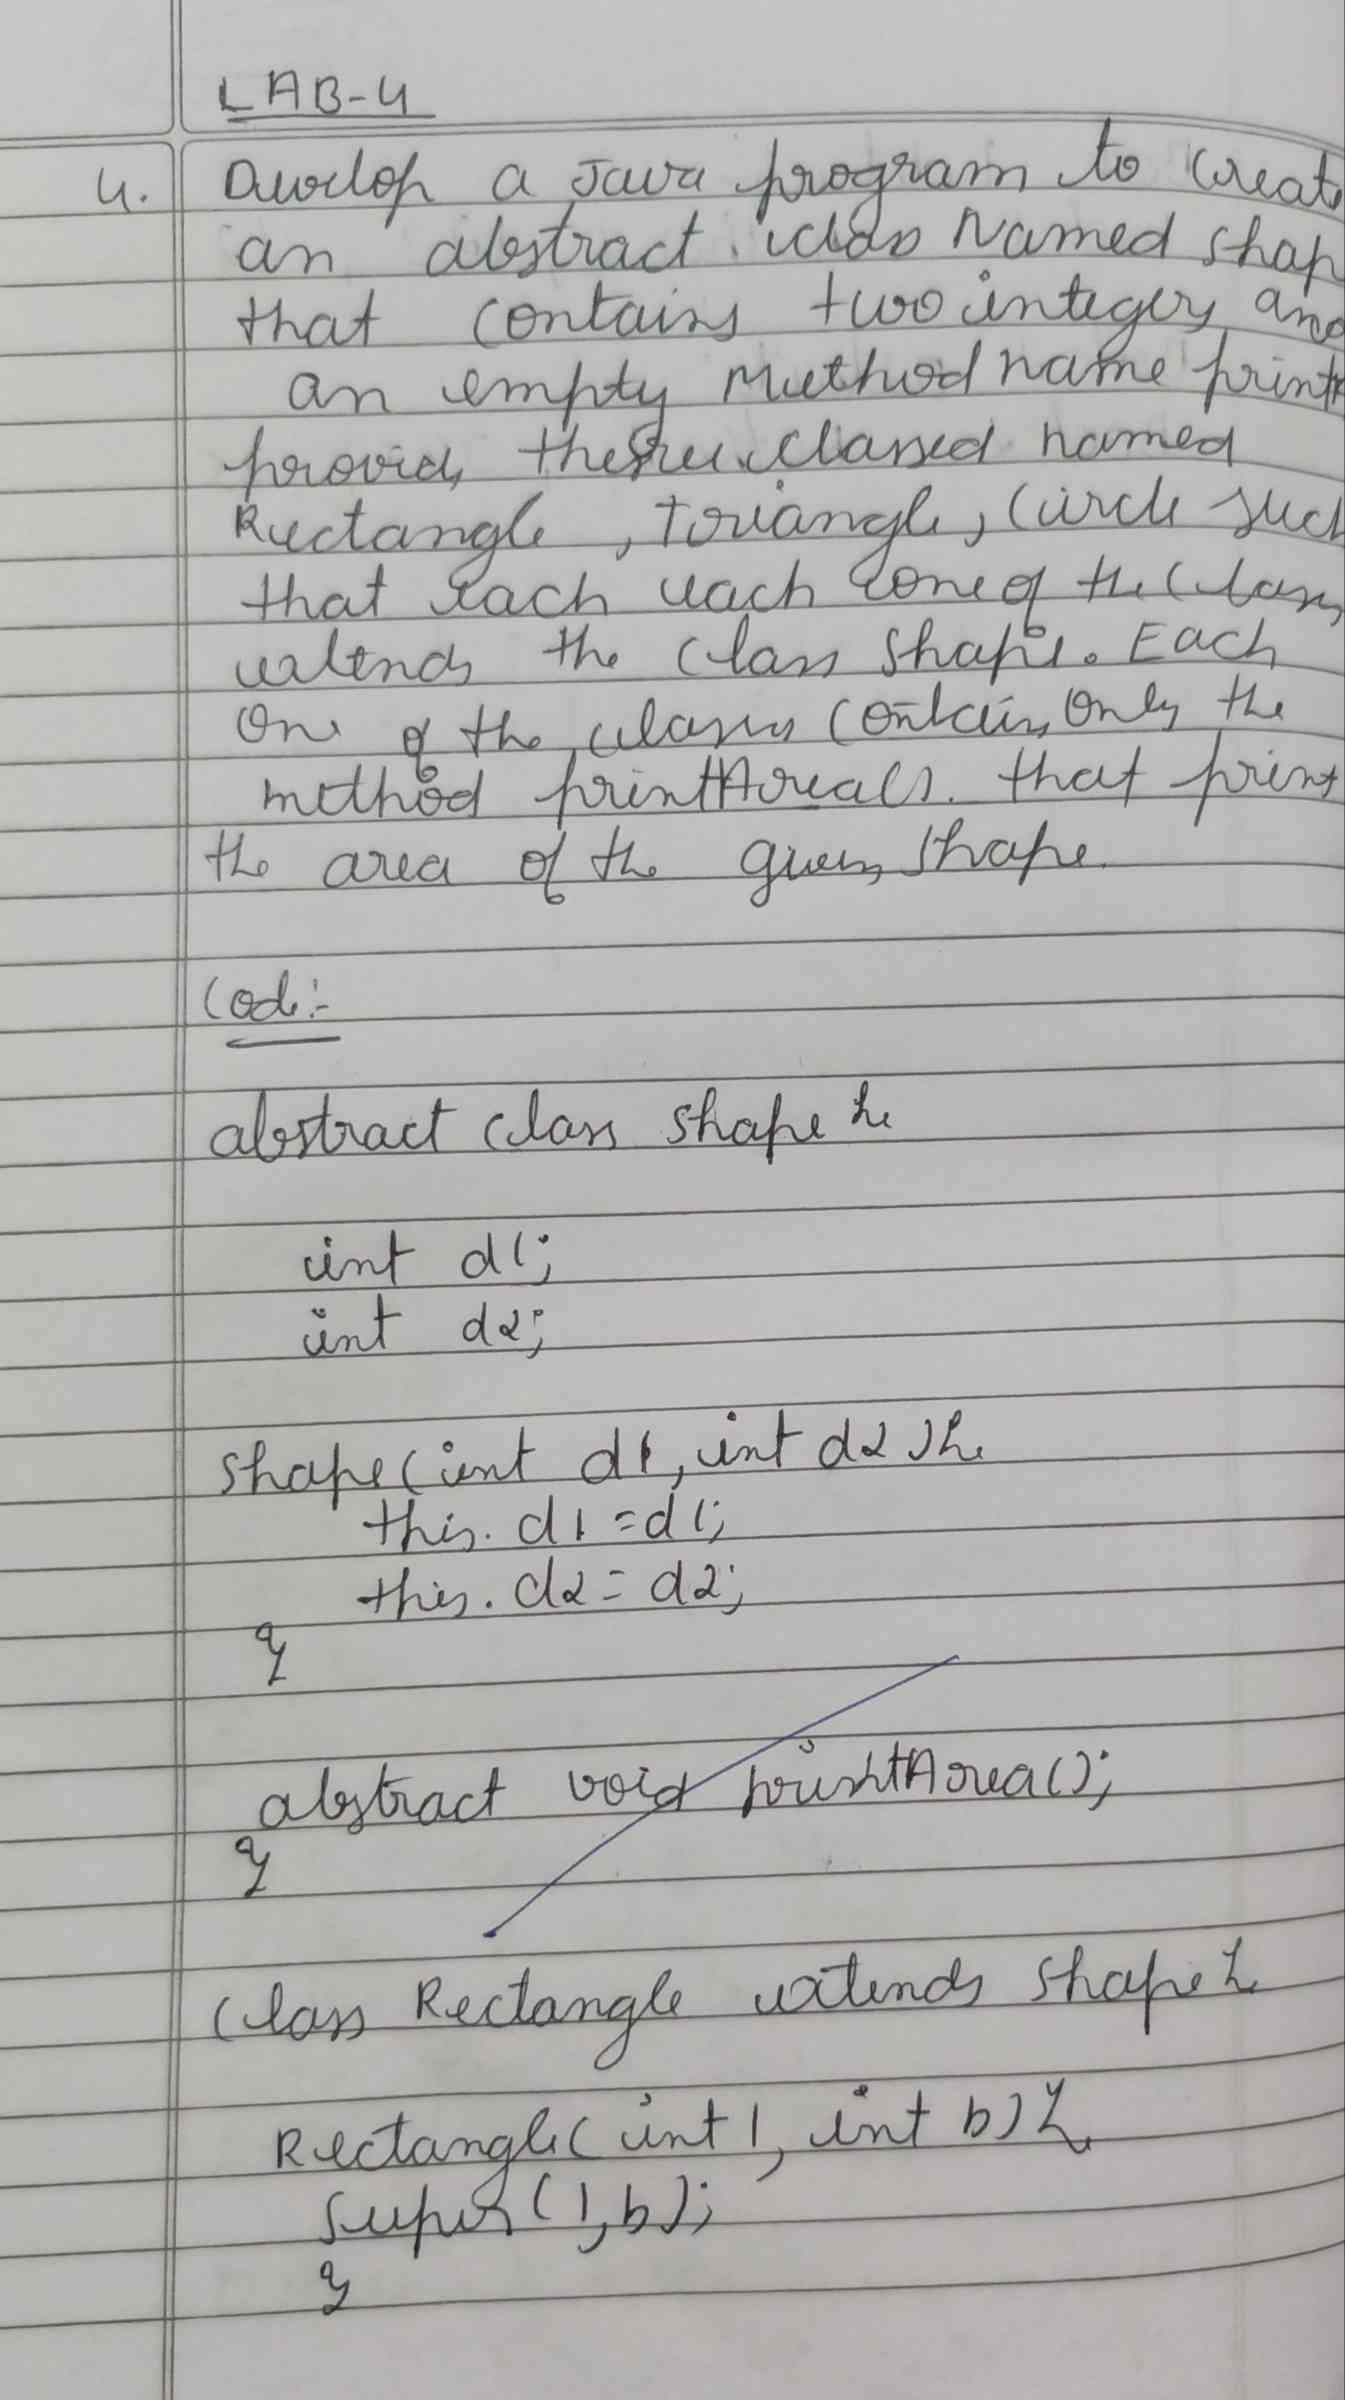 LAB-4
4. Develop a Java program to creat
an abstract class Named shap
that contains two integers and
an empty Method name print
provid three classed named
Rectangle, Triangle, Circle such
that each each one of the Class
extends the class Shape. Each
One of the classes Contain Only the
method printArea(). that print
the area of the given shape.
Code:-
abstract class shape {
int d1;
int d2;
shape(int d1, int d2){
this.d1 = d1;
this.d2 = d2;
}
abstract void printArea();
}
Class Rectangle extends shape {
Rectangle(int l, int b){
super(l,b);
}